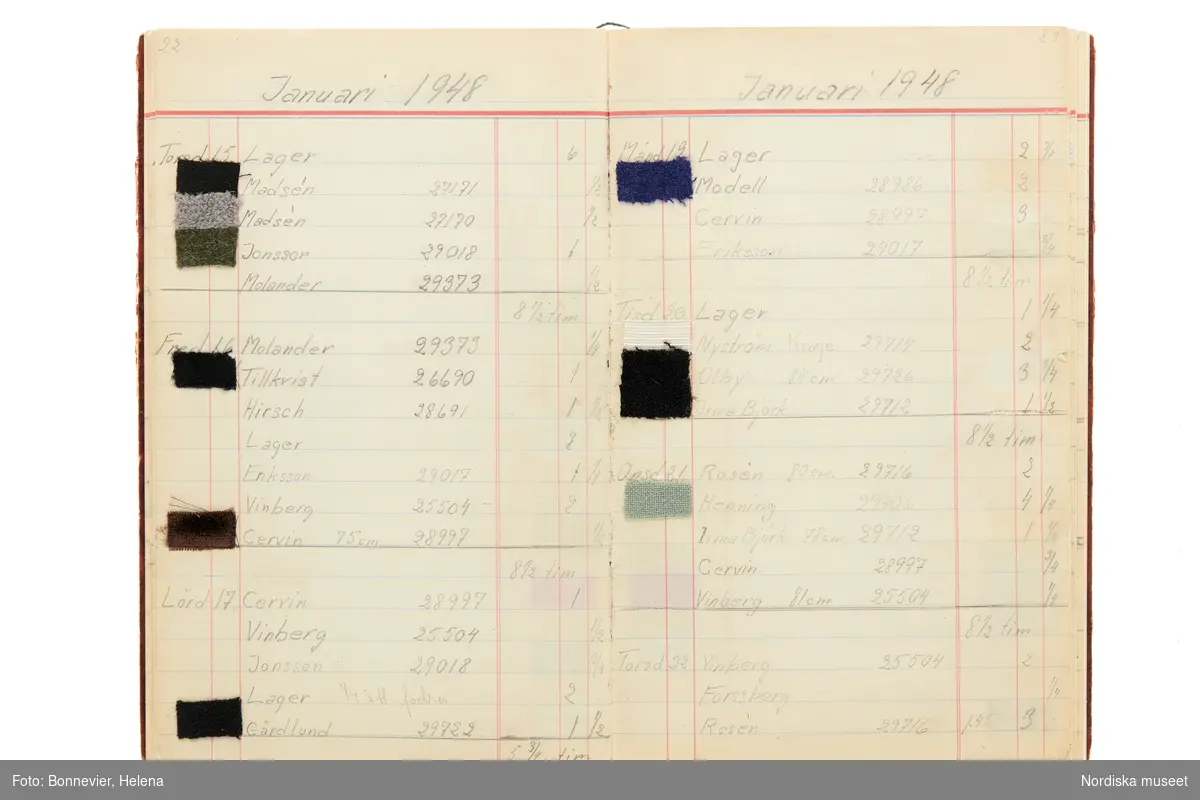 22
Januari 1948
Torsd 15 Lager 6
Madsén 27171 1/2
Madsén 27170 1/2
Jonsson 29018 1
Molander 29373 1/2
8 1/2 tim
Fred 16 Molander 29373 1/4
Tillkvist 26690 1
Hirsch 28691 1 1/2
Lager 2
Eriksson 29017 1 1/4
Vinberg 25504 2
Cervin 75cm 28997 1/2
8 1/2 tim
Lörd 17 Cervin 28997 1
Vinberg 25504 1/2
Jonsson 29018 3/4
Lager 2
Gårdlund 29722 1 1/2
5 3/4 tim
23
Januari 1948
Månd 19 Lager 2 3/4
Modell 28986 2
Cervin 28997 3
Eriksson 29017 3/4
8 1/2 tim
Tisd 20 Lager 1 1/4
Nyström Krage 29714 2
Olby 84cm 29786 3 3/4
Irma Björk 29712 1 1/2
8 1/2 tim
Onsd 21 Rosén 80cm 29716 2
Henning 29406 4 1/4
Irma Björk 78cm 29712 1 1/4
Cervin 28997 3/4
Vinberg 81cm 25504 1/4
8 1/2 tim
Torsd 22 Vinberg 25504 2
Forssberg 1/4
Rosén 29716 3
Foto: Bonnevier, Helena
Nordiska museet